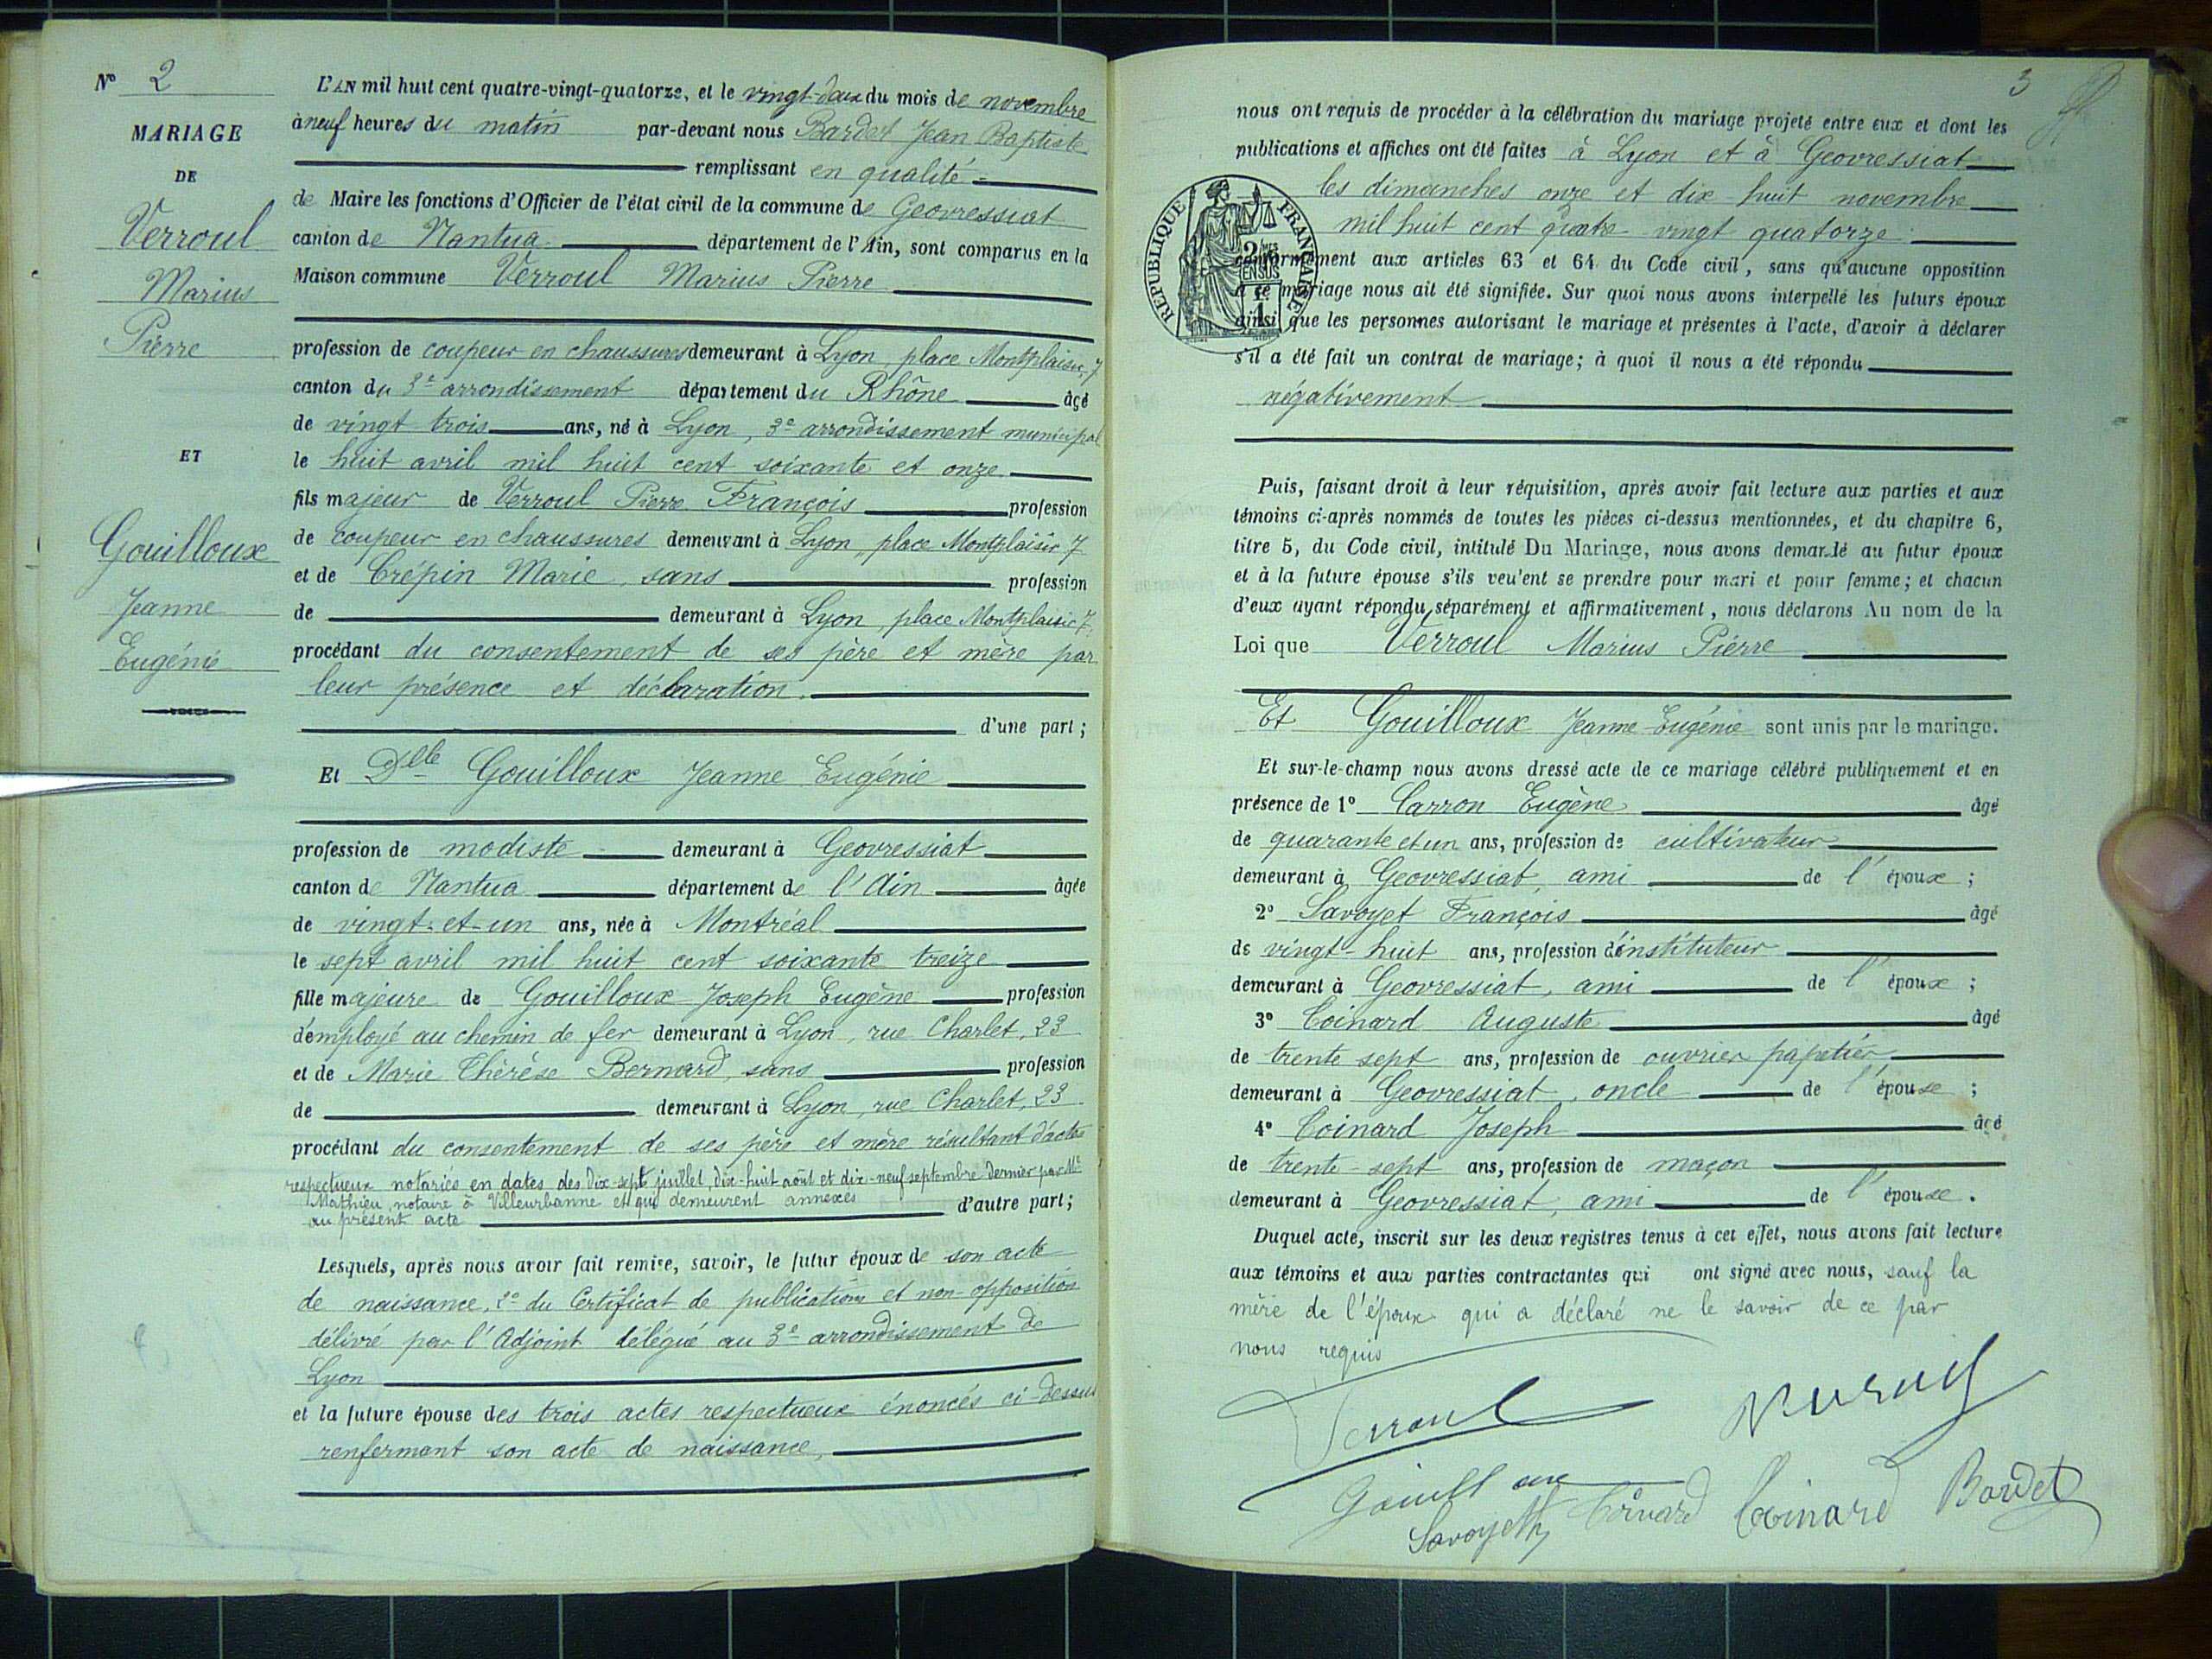 N° 2
MARIAGE
DE
Verroul
Marius
Pierre
ET
Gouilloux
Jeanne
Eugénie
L'AN mil huit cent quatre-vingt-quatorze, et le vingt-deux du mois de novembre
à neuf heures du matin par-devant nous Bardet Jean Baptiste
remplissant en qualité
de Maire les fonctions d'Officier de l'état civil de la commune de Geovressiat
canton de Nantua département de l'Ain, sont comparus en la
Maison commune Verroul Marius Pierre
profession de coupeur en chaussures demeurant à Lyon, place Montplaisir, 7
canton du 3e arrondissement département du Rhône âgé
de vingt trois ans, né à Lyon, 3e arrondissement municipal
le huit avril mil huit cent soixante et onze
fils majeur de Verroul Pierre François profession
de coupeur en chaussures demeurant à Lyon, place Montplaisir 7
et de Crépin Marie, sans profession
de demeurant à Lyon, place Montplaisir 7.
procédant du consentement de ses père et mère par
leur présence et déclaration.
d'une part ;
Et Delle Gouilloux Jeanne Eugénie
profession de modiste demeurant à Geovressiat
canton de Nantua département de l'Ain âgée
de vingt-et-un ans, née à Montréal
le sept avril mil huit cent soixante treize
fille majeure de Gouilloux Joseph Eugène profession
d'employé au chemin de fer demeurant à Lyon, rue Charlet, 23
et de Marie Thérèse Bernard, sans profession
de demeurant à Lyon, rue Charlet, 23
procédant du consentement de ses père et mère résultant d'actes
respectueux notariés en dates des dix-sept juillet, dix-huit août et dix-neuf septembre dernier par Me
Mathieu, notaire à Villeurbanne et qui demeurent annexés d'autre part ;
au présent acte
Lesquels, après nous avoir fait remise, savoir, le futur époux de son acte
de naissance, 2° du Certificat de publications et non-opposition
délivré par l'Adjoint délégué au 3e arrondissement de
Lyon
et la future épouse des trois actes respectueux énoncés ci-dessus
renfermant son acte de naissance,
3
nous ont requis de procéder à la célébration du mariage projeté entre eux et dont les
publications et affiches ont été faites à Lyon et à Geovressiat
les dimanches onze et dix-huit novembre
mil huit cent quatre-vingt quatorze
RÉPUBLIQUE FRANÇAISE
conformément aux articles 63 et 64 du Code civil, sans qu'aucune opposition
à ce mariage nous ait été signifiée. Sur quoi nous avons interpellé les futurs époux
ainsi que les personnes autorisant le mariage et présentes à l'acte, d'avoir à déclarer
s'il a été fait un contrat de mariage ; à quoi il nous a été répondu
négativement
Puis, faisant droit à leur réquisition, après avoir fait lecture aux parties et aux
témoins ci-après nommés de toutes les pièces ci-dessus mentionnées, et du chapitre 6,
titre 5, du Code civil, intitulé Du Mariage, nous avons demandé au futur époux
et à la future épouse s'ils veulent se prendre pour mari et pour femme ; et chacun
d'eux ayant répondu séparément et affirmativement, nous déclarons Au nom de la
Loi que Verroul Marius Pierre
Et Gouilloux Jeanne Eugénie sont unis par le mariage.
Et sur-le-champ nous avons dressé acte de ce mariage célébré publiquement et en
présence de 1° Carron Eugène âgé
de quarante et un ans, profession de cultivateur
demeurant à Geovressiat, ami de l'époux ;
2° Savoyet François âgé
de vingt-huit ans, profession d'instituteur
demeurant à Geovressiat, ami de l'époux ;
3° Coinard Auguste âgé
de trente sept ans, profession de ouvrier papetier
demeurant à Geovressiat, oncle de l'épouse ;
4° Coinard Joseph âgé
de trente-sept ans, profession de maçon
demeurant à Geovressiat, ami de l'épouse.
Duquel acte, inscrit sur les deux registres tenus à cet effet, nous avons fait lecture
aux témoins et aux parties contractantes qui ont signé avec nous, sauf la
mère de l'époux qui a déclaré ne le savoir de ce par
nous requis
Verroul
Gouilloux
Savoyet Coinard Coinard Bardet